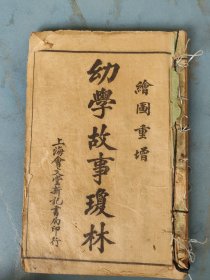 繪圖重增
幼學故事瓊林
上海會文堂新記書局印行